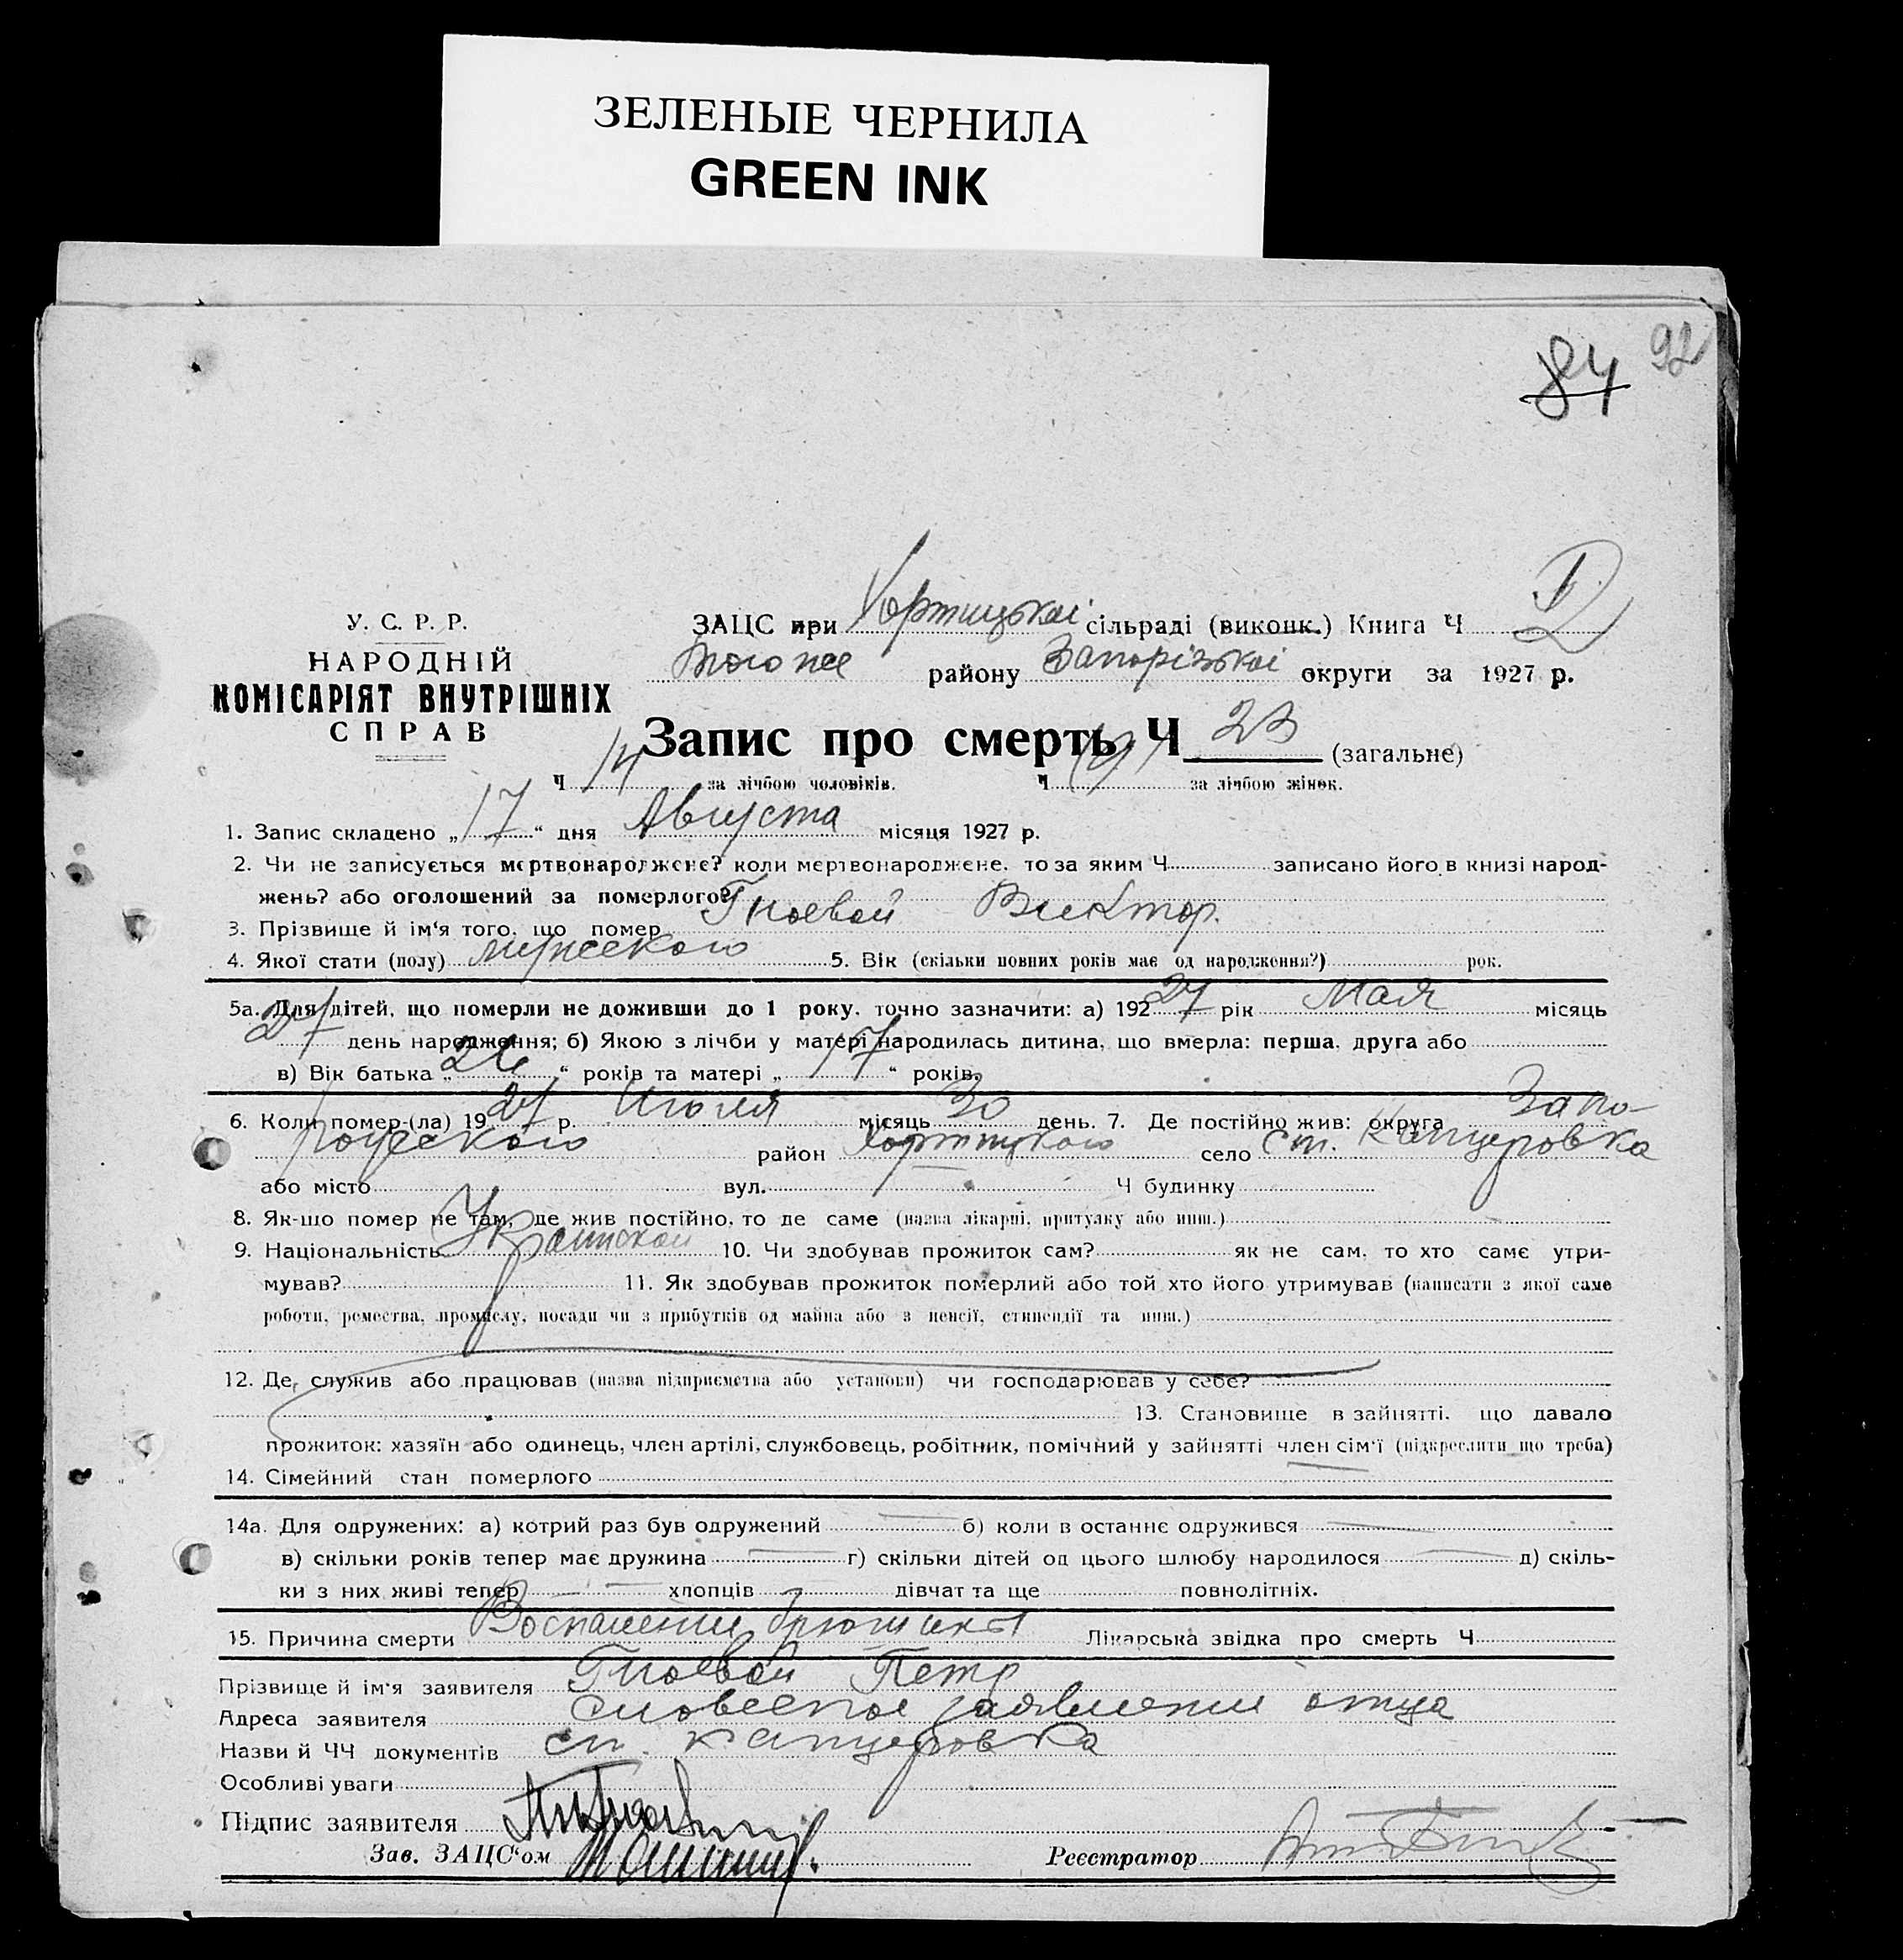 ЗЕЛЕНЫЕ ЧЕРНИЛА
GREEN INK
84 92
У. С. Р. Р.
НАРОДНІЙ
КОМІСАРІЯТ ВНУТРІШНІХ
СПРАВ
ЗАЦС при Хортицькоі сільраді (виконк.) Книга Ч
Тогоже району Запорізькоі округи за 1927 р.
Запис про смерть Ч 23 (загальне)
Ч 14 за лічбою чоловіків. Ч (9) за лічбою жінок.
1. Запис складено „17“ дня Августа місяця 1927 р.
2. Чи не записується мертвонароджене? коли мертвонароджене, то за яким Ч записано його в книзі народ-
жень? або оголошений за померлого?
3. Прізвище й ім‘я того, що помер Гноевой Виктор.
4. Якої стати (полу) мужского 5. Вік (скільки повних років має од народження?) рок.
5а. Для дітей, що померли не доживши до 1 року, точно зазначити: а) 192 27 рік Мая місяць
27 день народження; б) Якою з лічби у матері народилась дитина, що вмерла: перша, друга або
в) Вік батька „26“ років та матері „17“ років.
6. Коли помер-(ла) 1927 р. Июля місяць 30 день. 7. Де постійно жив: округа Запо-
рожского район Хортицкого село ст. Канцеровка
або місто вул. Ч будинку
8. Як-що помер не там, де жив постійно, то де саме (назва лікарні, притулку або инш.)
9. Національність Украинской 10. Чи здобував прожиток сам? як не сам, то хто саме утри-
мував? 11. Як здобував прожиток померлий або той хто його утримував (написати з якої саме
роботи, ремества, промислу, посади чи з прибутків од майна або з пенсії, стипендії та инш.)
12. Де, служив або працював (назва підприємства або установи) чи господарював у себе?
13. Становище в зайнятті, що давало
прожиток: хазяїн або одинець, член артілі, службовець, робітник, помічний у зайнятті член сім‘ї (підкреслити що треба)
14. Сімейний стан померлого
14а. Для одружених: а) котрий раз був одружений б) коли в останнє одружився
в) скільки років тепер має дружина г) скільки дітей од цього шлюбу народилося д) скіль-
ки з них живі тепер хлопців дівчат та ще повнолітніх.
15. Причина смерти Воспаление Лікарська звідка про смерть Ч
Прізвище й ім‘я заявителя Гноевой Петр
Адреса заявителя словесное заявление отца
Назви й ЧЧ документів ст. Канцеровка
Особливі уваги
Підпис заявителя
Зав. ЗАЦС‘ом Реєстратор